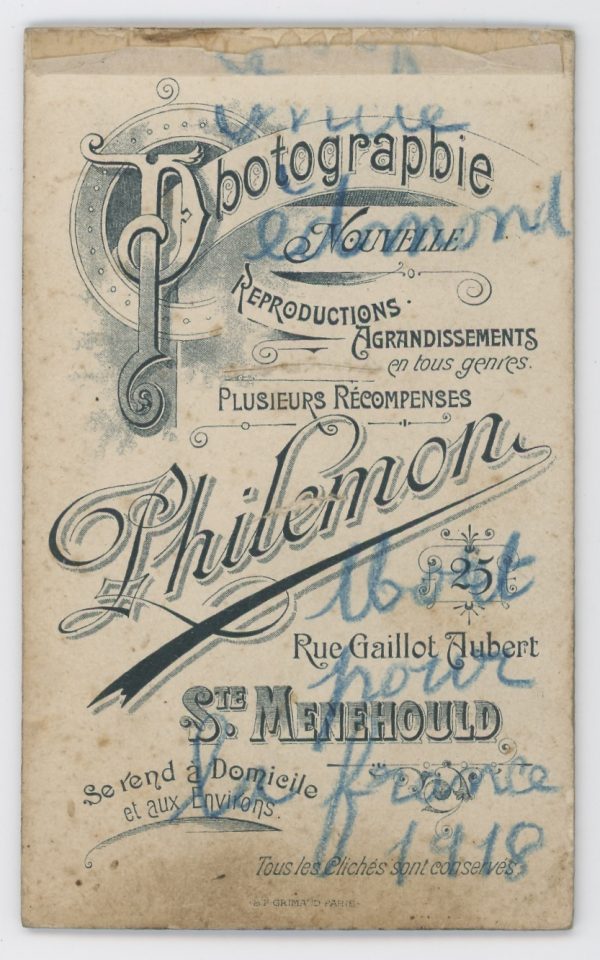 Photographie
edmond
Nouvelle
Reproductions.
Agrandissements
en tous genres.
Plusieurs Récompenses
Philemon
25
Rue Gaillot Aubert
pour
Ste. Menehould
la france
Se rend à Domicile
et aux Environs.
1918
Tous les Clichés sont conservés
B.P. GRIMAUD PARIS